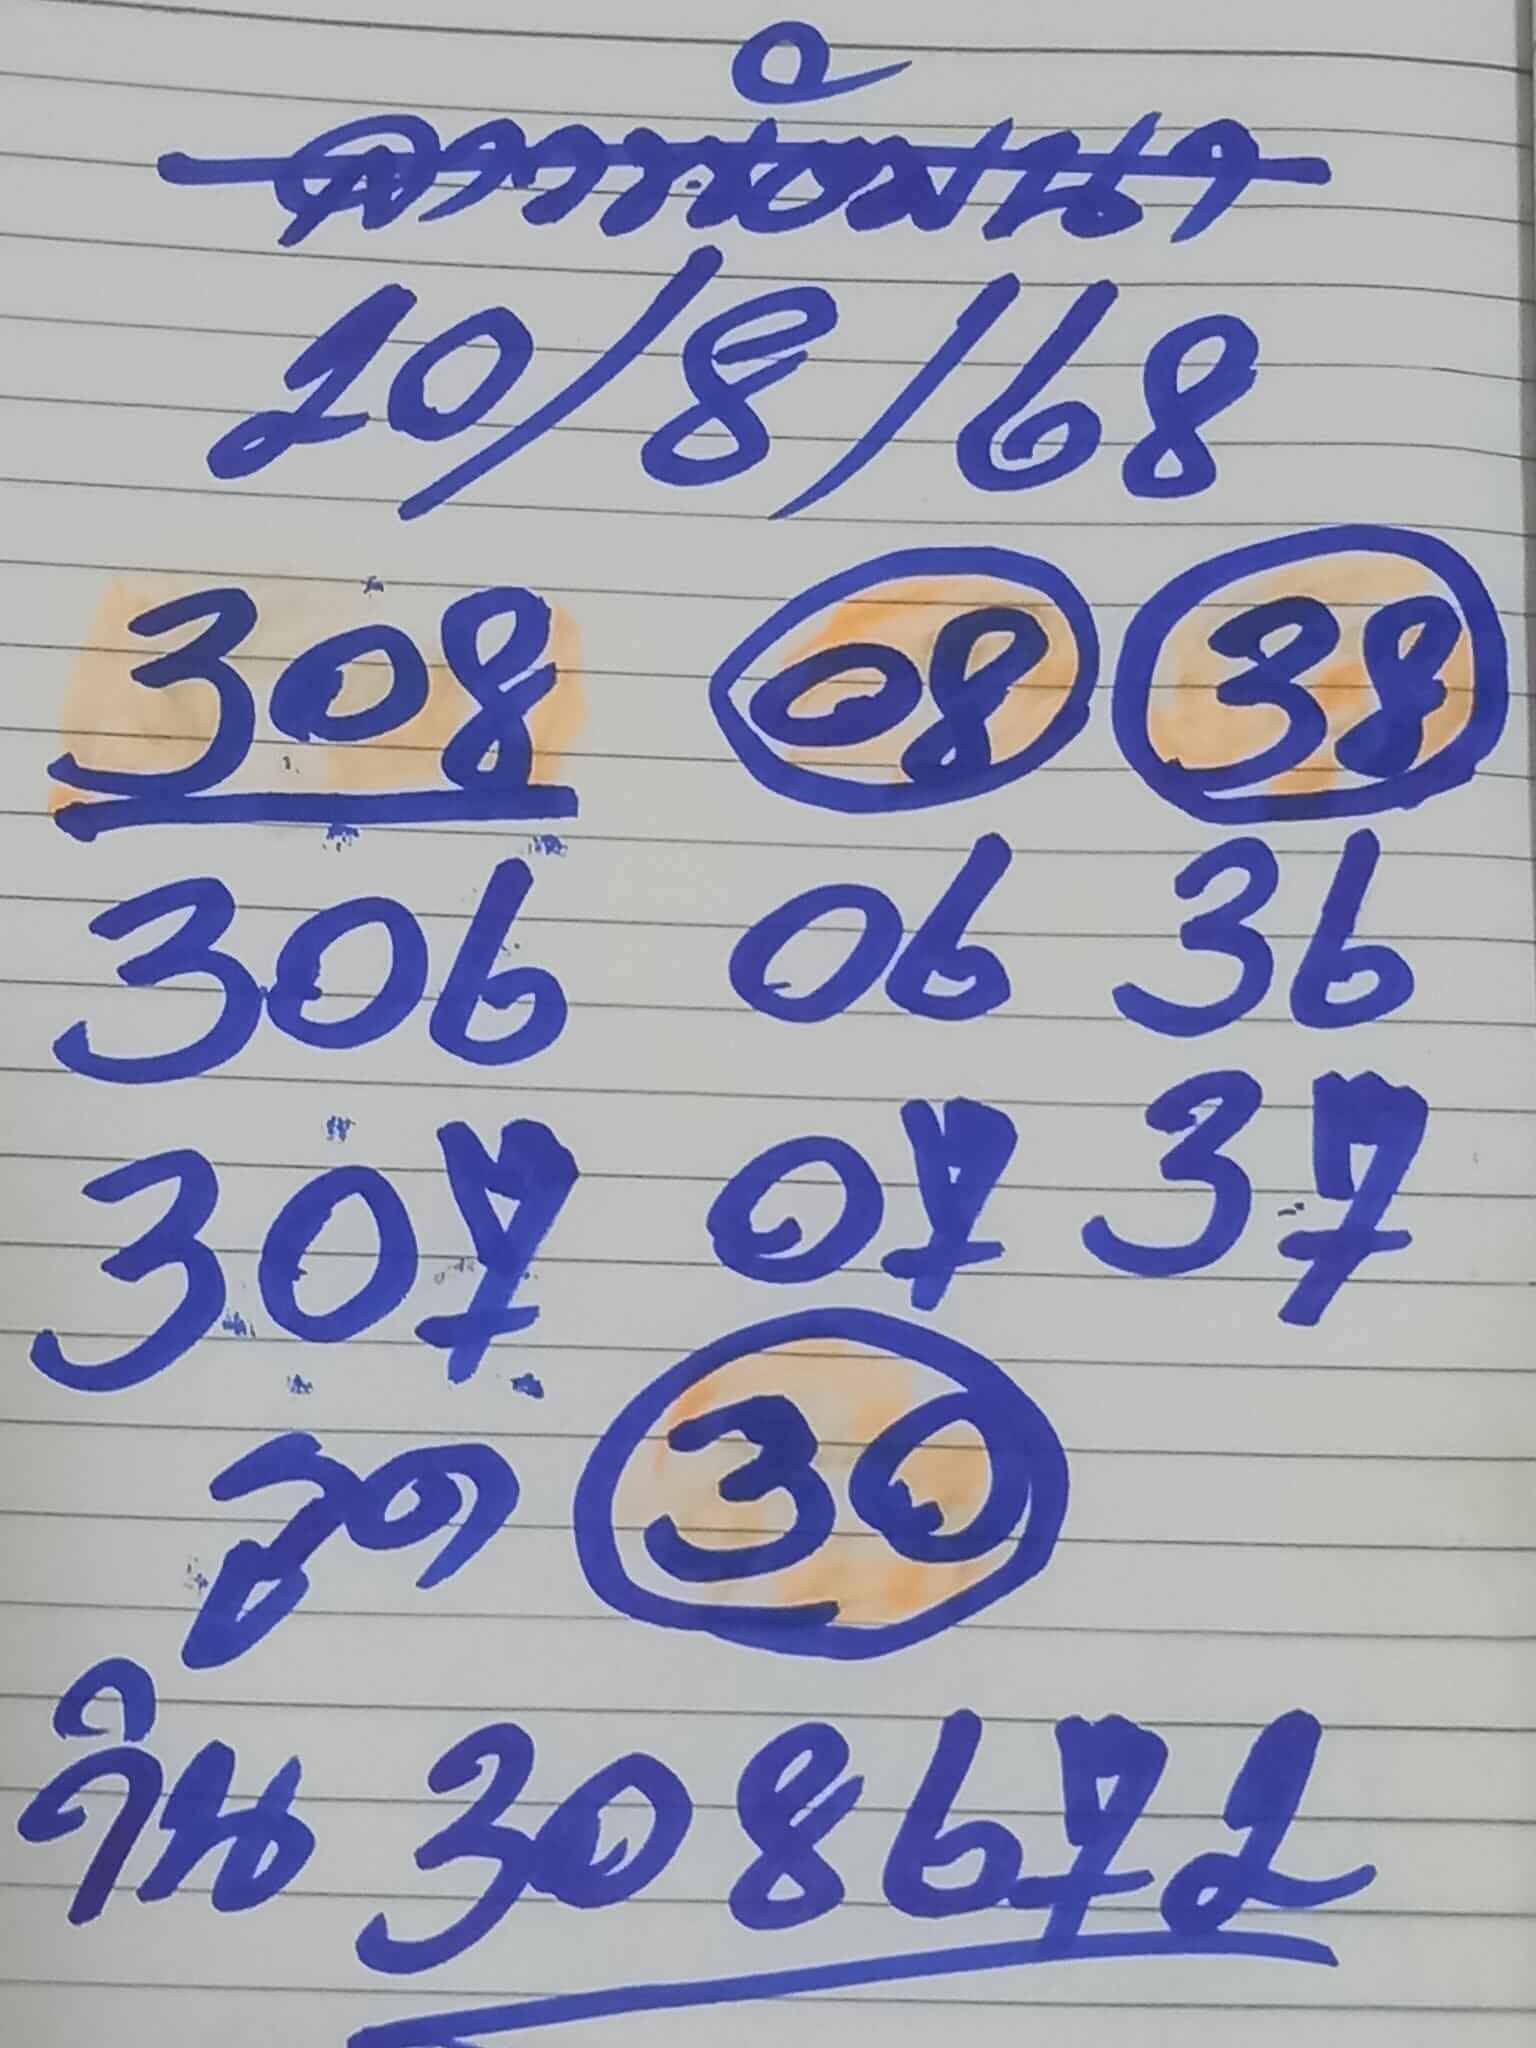 ลาวพัฒนา
20/8/68
308 08 38
306 06 36
307 07 37
รูด 30
วิน 308672